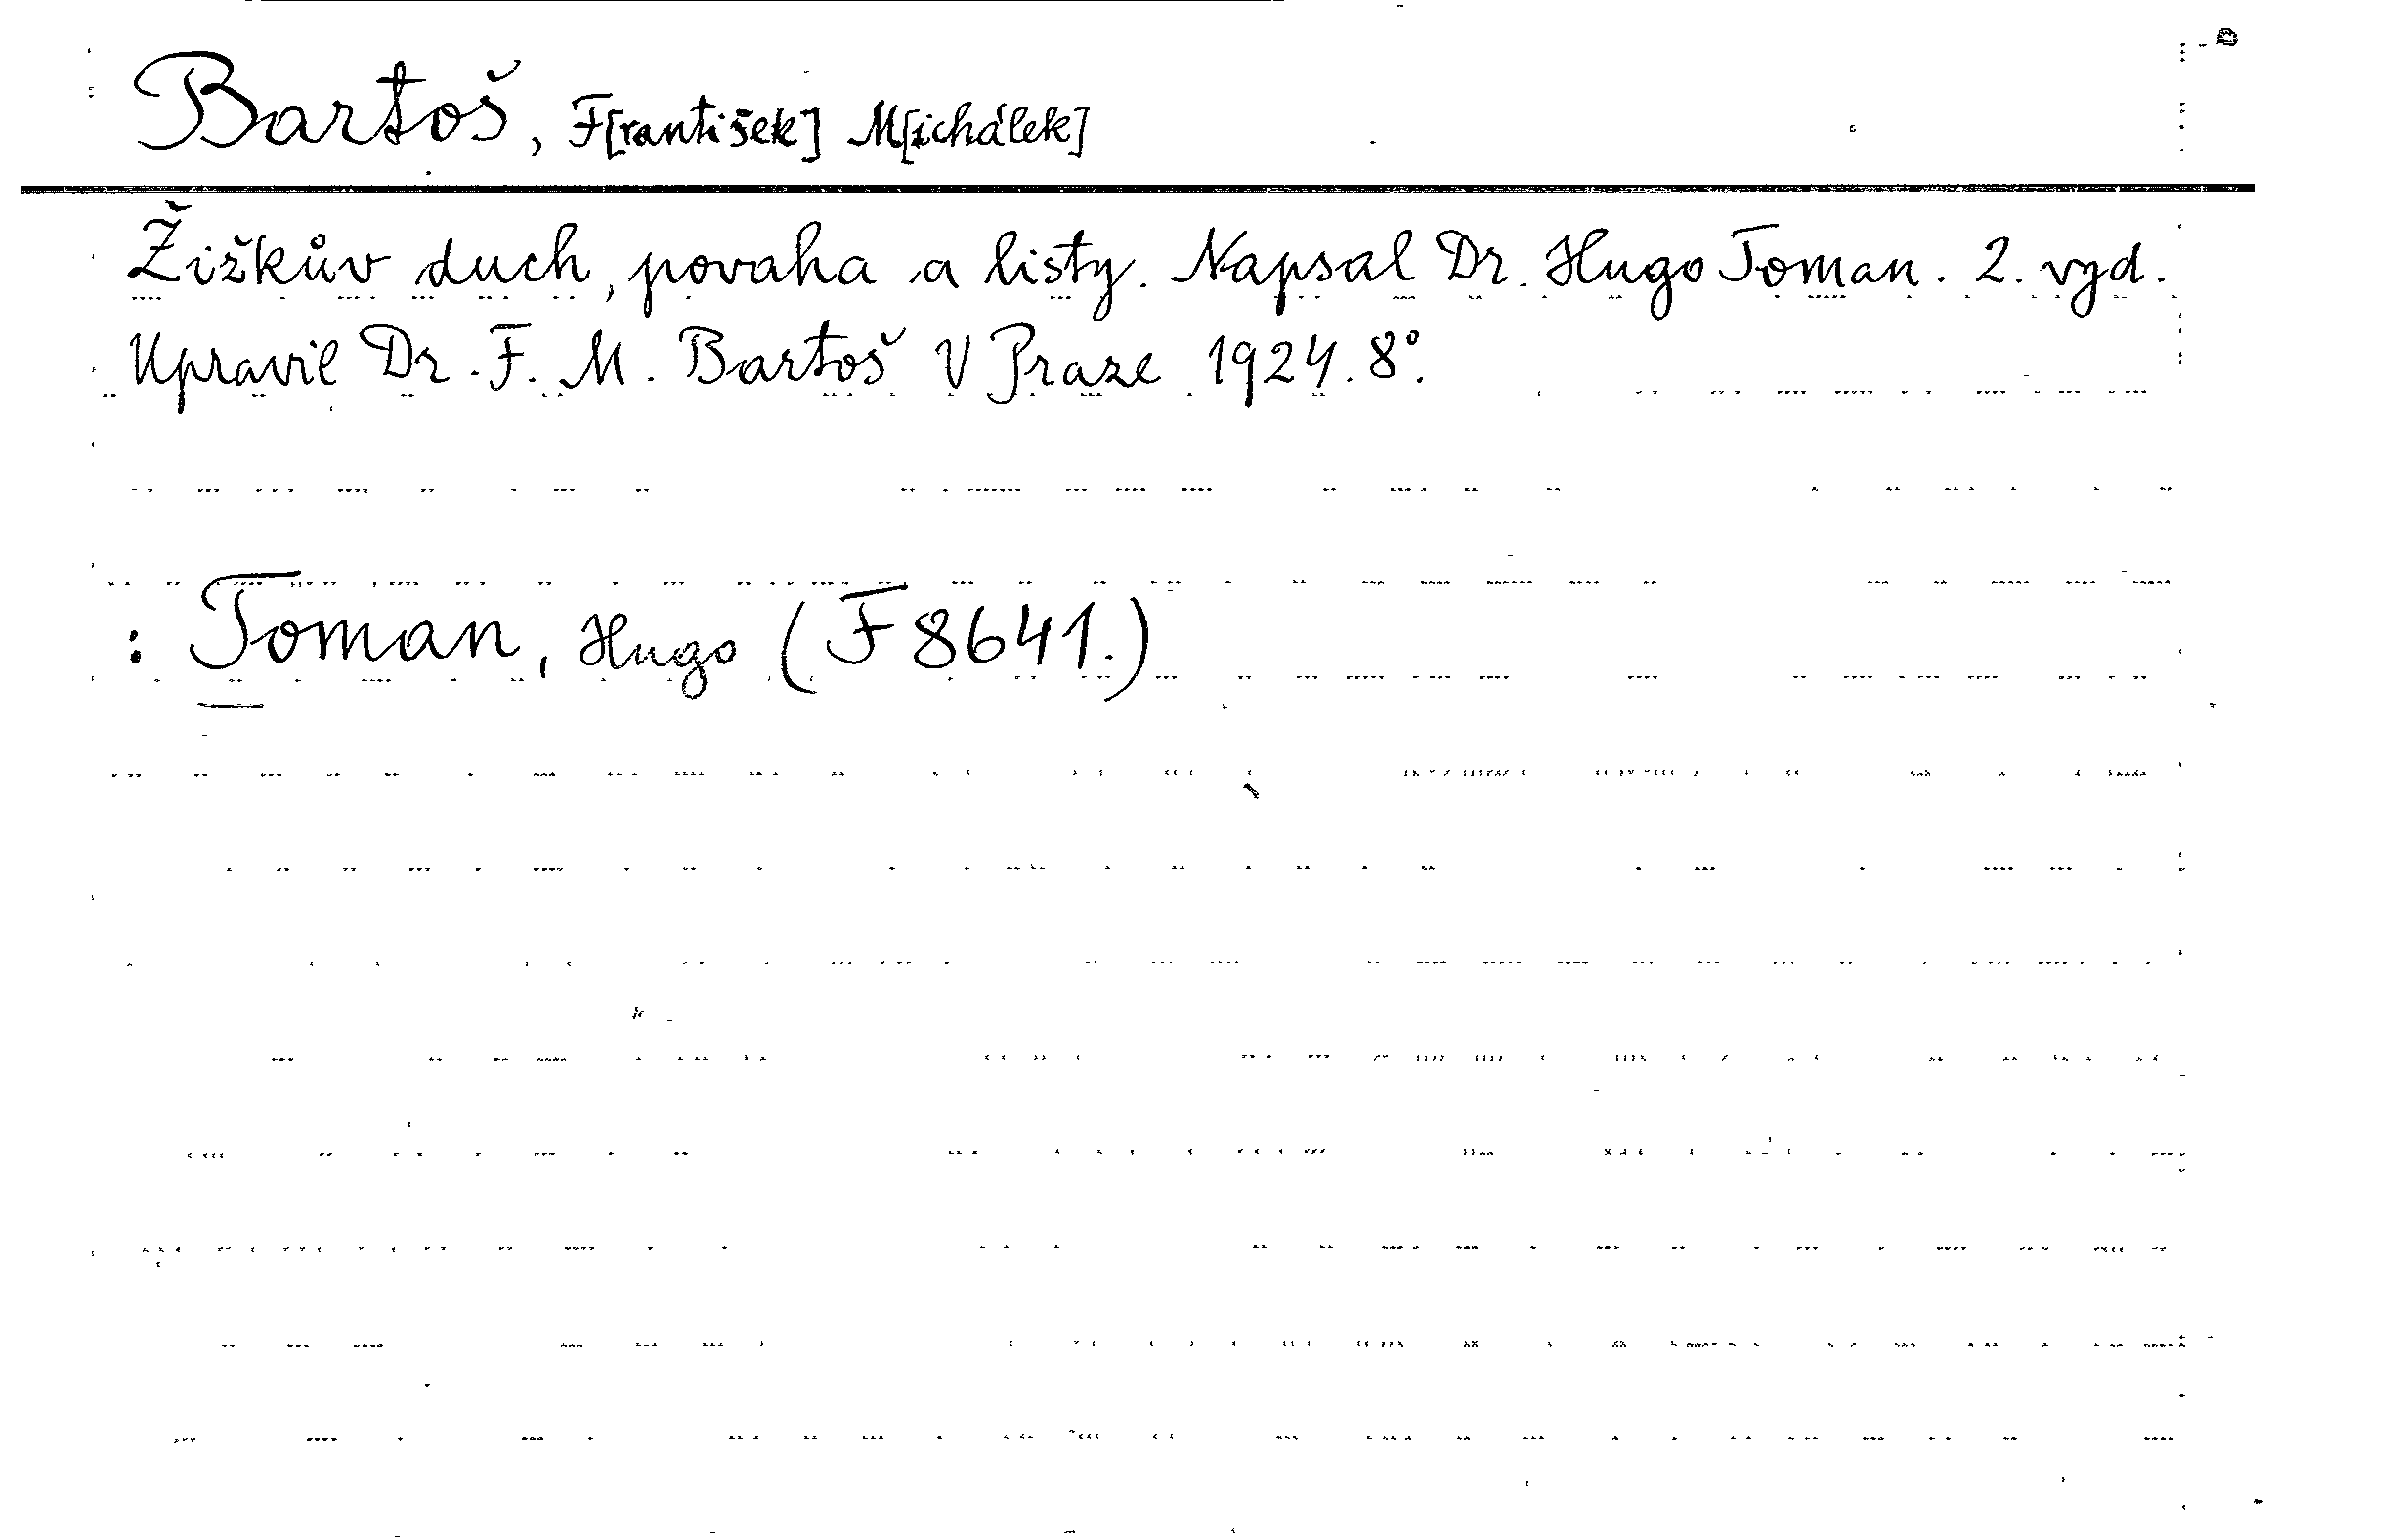 Bartoš, F[rantišek] M[ichálek]
Žižkův duch, povaha a listy. Napsal Dr. Hugo Toman. 2. vyd.
Upravil Dr. F. M. Bartoš V Praze 1924. 8°.
: Toman, Hugo (F 8641.)